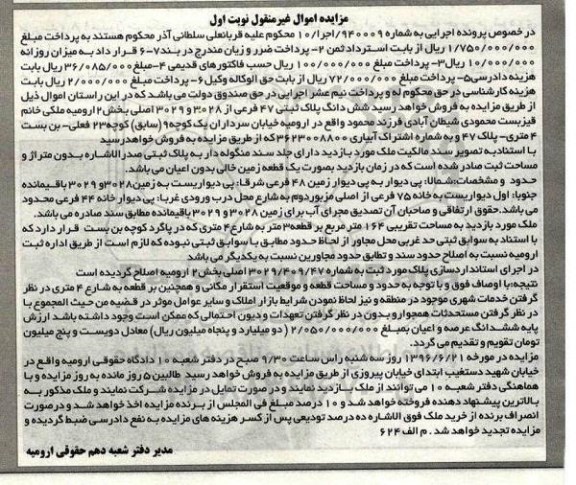 مزایده اموال غیرمنقول نوبت اول
در خصوص پرونده اجرایی به شماره ۹۴۰۰۰۹/اجرا/۱۰ محکوم علیه قربانعلی سلطانی آذر محکوم هستند به پرداخت مبلغ
۱/۷۵۰/۰۰۰/۰۰۰ ریال از بابت استرداد ثمن ۲- پرداخت ضرر و زیان مندرج در بند۷-۶ قرار داد به میزان روزانه
۱۰/۰۰۰/۰۰۰ ریال۳- پرداخت مبلغ ۱۰۰/۰۰۰/۰۰۰ ریال حسب فاکتورهای قدیمی ۴-مبلغ ۳۶/۰۸۵/۰۰۰ ریال بابت
هزینه دادرسی۵- پرداخت مبلغ ۷۲/۰۰۰/۰۰۰ ریال از بابت حق الوکاله وکیل ۶- پرداخت مبلغ ۲/۰۰۰/۰۰۰ ریال بابت
هزینه کارشناسی در حق محکوم له و پرداخت نیم عشر اجرایی در حق صندوق دولت می باشد که در این راستان اموال ذیل
از طریق مزایده به فروش خواهد رسید شش دانگ پلاک ثبتی ۴۷ فرعی از ۳۰۲۸ و ۳۰۲۹ اصلی بخش ۲ ارومیه ملکی خانم
قیزبست محمودی شیطان آبادی فرزند محمود واقع در ارومیه خیابان سرداران یک کوچه۹ (سابق) کوچه۲۳ فعلی- بن بست
۴ متری- پلاک ۴۷ و به شماره اشتراک آبیاری ۳۶۲۳۰۰۸۸۰۰ که از طریق مزایده به فروش خواهدرسید
با استنادبه تصویر سند مالکیت ملک مورد بازدید دارای جلد سند منگوله دار به پلاک ثبتی صدرالاشاره بدون متراژ و
مساحت ثبت صادر شده است که در زمان بازدید بصورت یک قطعه زمین خالی بدون اعیان می باشد.
حدود و مشخصات:شمالا: پی دیوار به پی دیوار زمین ۴۸ فرعی شرقا: پی دیواریست به زمین۳۰۲۸و ۳۰۲۹ باقیمانده
جنوبا: اول دیواریست به خانه ۷۵ فرعی از اصلی مزبوردوم به شارع محل درب ورودی غربا: پی دیوار خانه ۴۴ فرعی محدود
می باشد.حقوق ارتفاقی و صاحبان آن تصدیق مجرای آب برای زمین ۳۰۲۸و ۳۰۲۹ باقیمانده مطابق سند صادره می باشد.
ملک مورد بازدید به مساحت تقریبی ۱۶۴ متر مربع بر قطعه۳ متر به شارع ۴ متری که در پاگرد کوچه بن بست قرار دارد که
با استناد به سوابق ثبتی حد غربی محل مجاور از لحاظ حدود مطابق با سوابق ثبتی نبوده که لازم است از طریق اداره ثبت
ارومیه نسبت به اصلاح حدود سند و تطابق حدود مجاورین نسبت به یکدیگر می باشد
در اجرای استانداردسازی پلاک مورد ثبت به شماره ۳۰۲۹/۴۰۹/۴۷ اصلی بخش ۲ ارومیه اصلاح گردیده است
نتیجه:با اوصاف فوق و با توجه به حدود و مساحت قطعه و موقعیت استقرار مکانی و همچنین بر قطعه به شارع ۴ متری در نظر
گرفتن خدمات شهری موجود در منطقه و نیز لحاظ نمودن شرایط بازار املاک و سایر عوامل موثر در قضیه من حیث المجموع با
در نظر گرفتن مستحدثات همجوار و بدون در نظر گرفتن تعهدات و دیون احتمالی که ممکن است وجود داشته باشد ارزش
پایه ششدانگ عرصه و اعیان بمبلغ ۲/۰۵۰/۰۰۰/۰۰۰ ( دو میلیارد و پنجاه میلیون ریال) معادل دویست و پنج میلیون
تومان تقویم و تقدیم می گردد.
مزایده در مورخه ۱۳۹۶/۶/۲۱ روز سه شنبه راس ساعت ۹/۳۰ صبح در دفتر شعبه ۱۰ دادگاه حقوقی ارومیه واقع در
خیابان شهید دستغیب ابتدای خیابان پیروزی از طریق مزایده به فروش خواهد رسید طالبین ۵ روز مانده به روز مزایده و با
هماهنگی دفتر شعبه ۱۰ می توانند از ملک بازدید نمایند و در صورت تمایل در مزایده شرکت نمایند و ملک مذکور به
بالاترین پیشنهاد دهنده فروخته خواهد شد و ۱۰ درصد مبلغ فی المجلس از برنده مزایده اخذ خواهد شد و درصورت
انصراف برنده از خرید ملک فوق الاشاره ده درصد تودیعی پس از کسر هزینه های مزایده به نفع دادرسی ضبط گردیده و
مزایده تجدید خواهد شد . م الف ۶۲۴
مدیر دفتر شعبه دهم حقوقی ارومیه